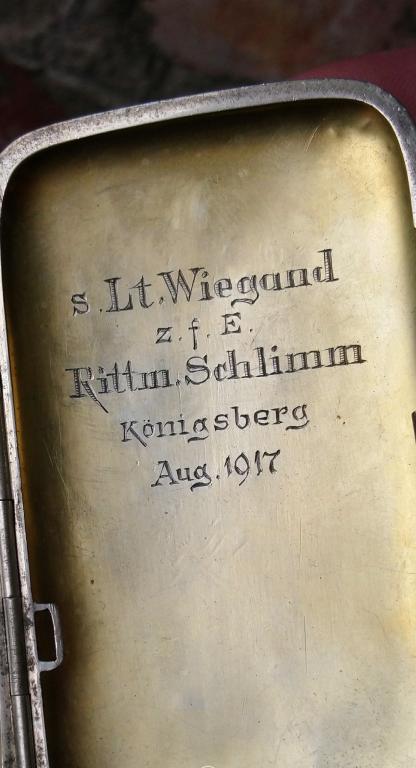 s. Lt. Wiegand
z. f. E.
Rittm. Schlimm
Königsberg
Aug. 1917